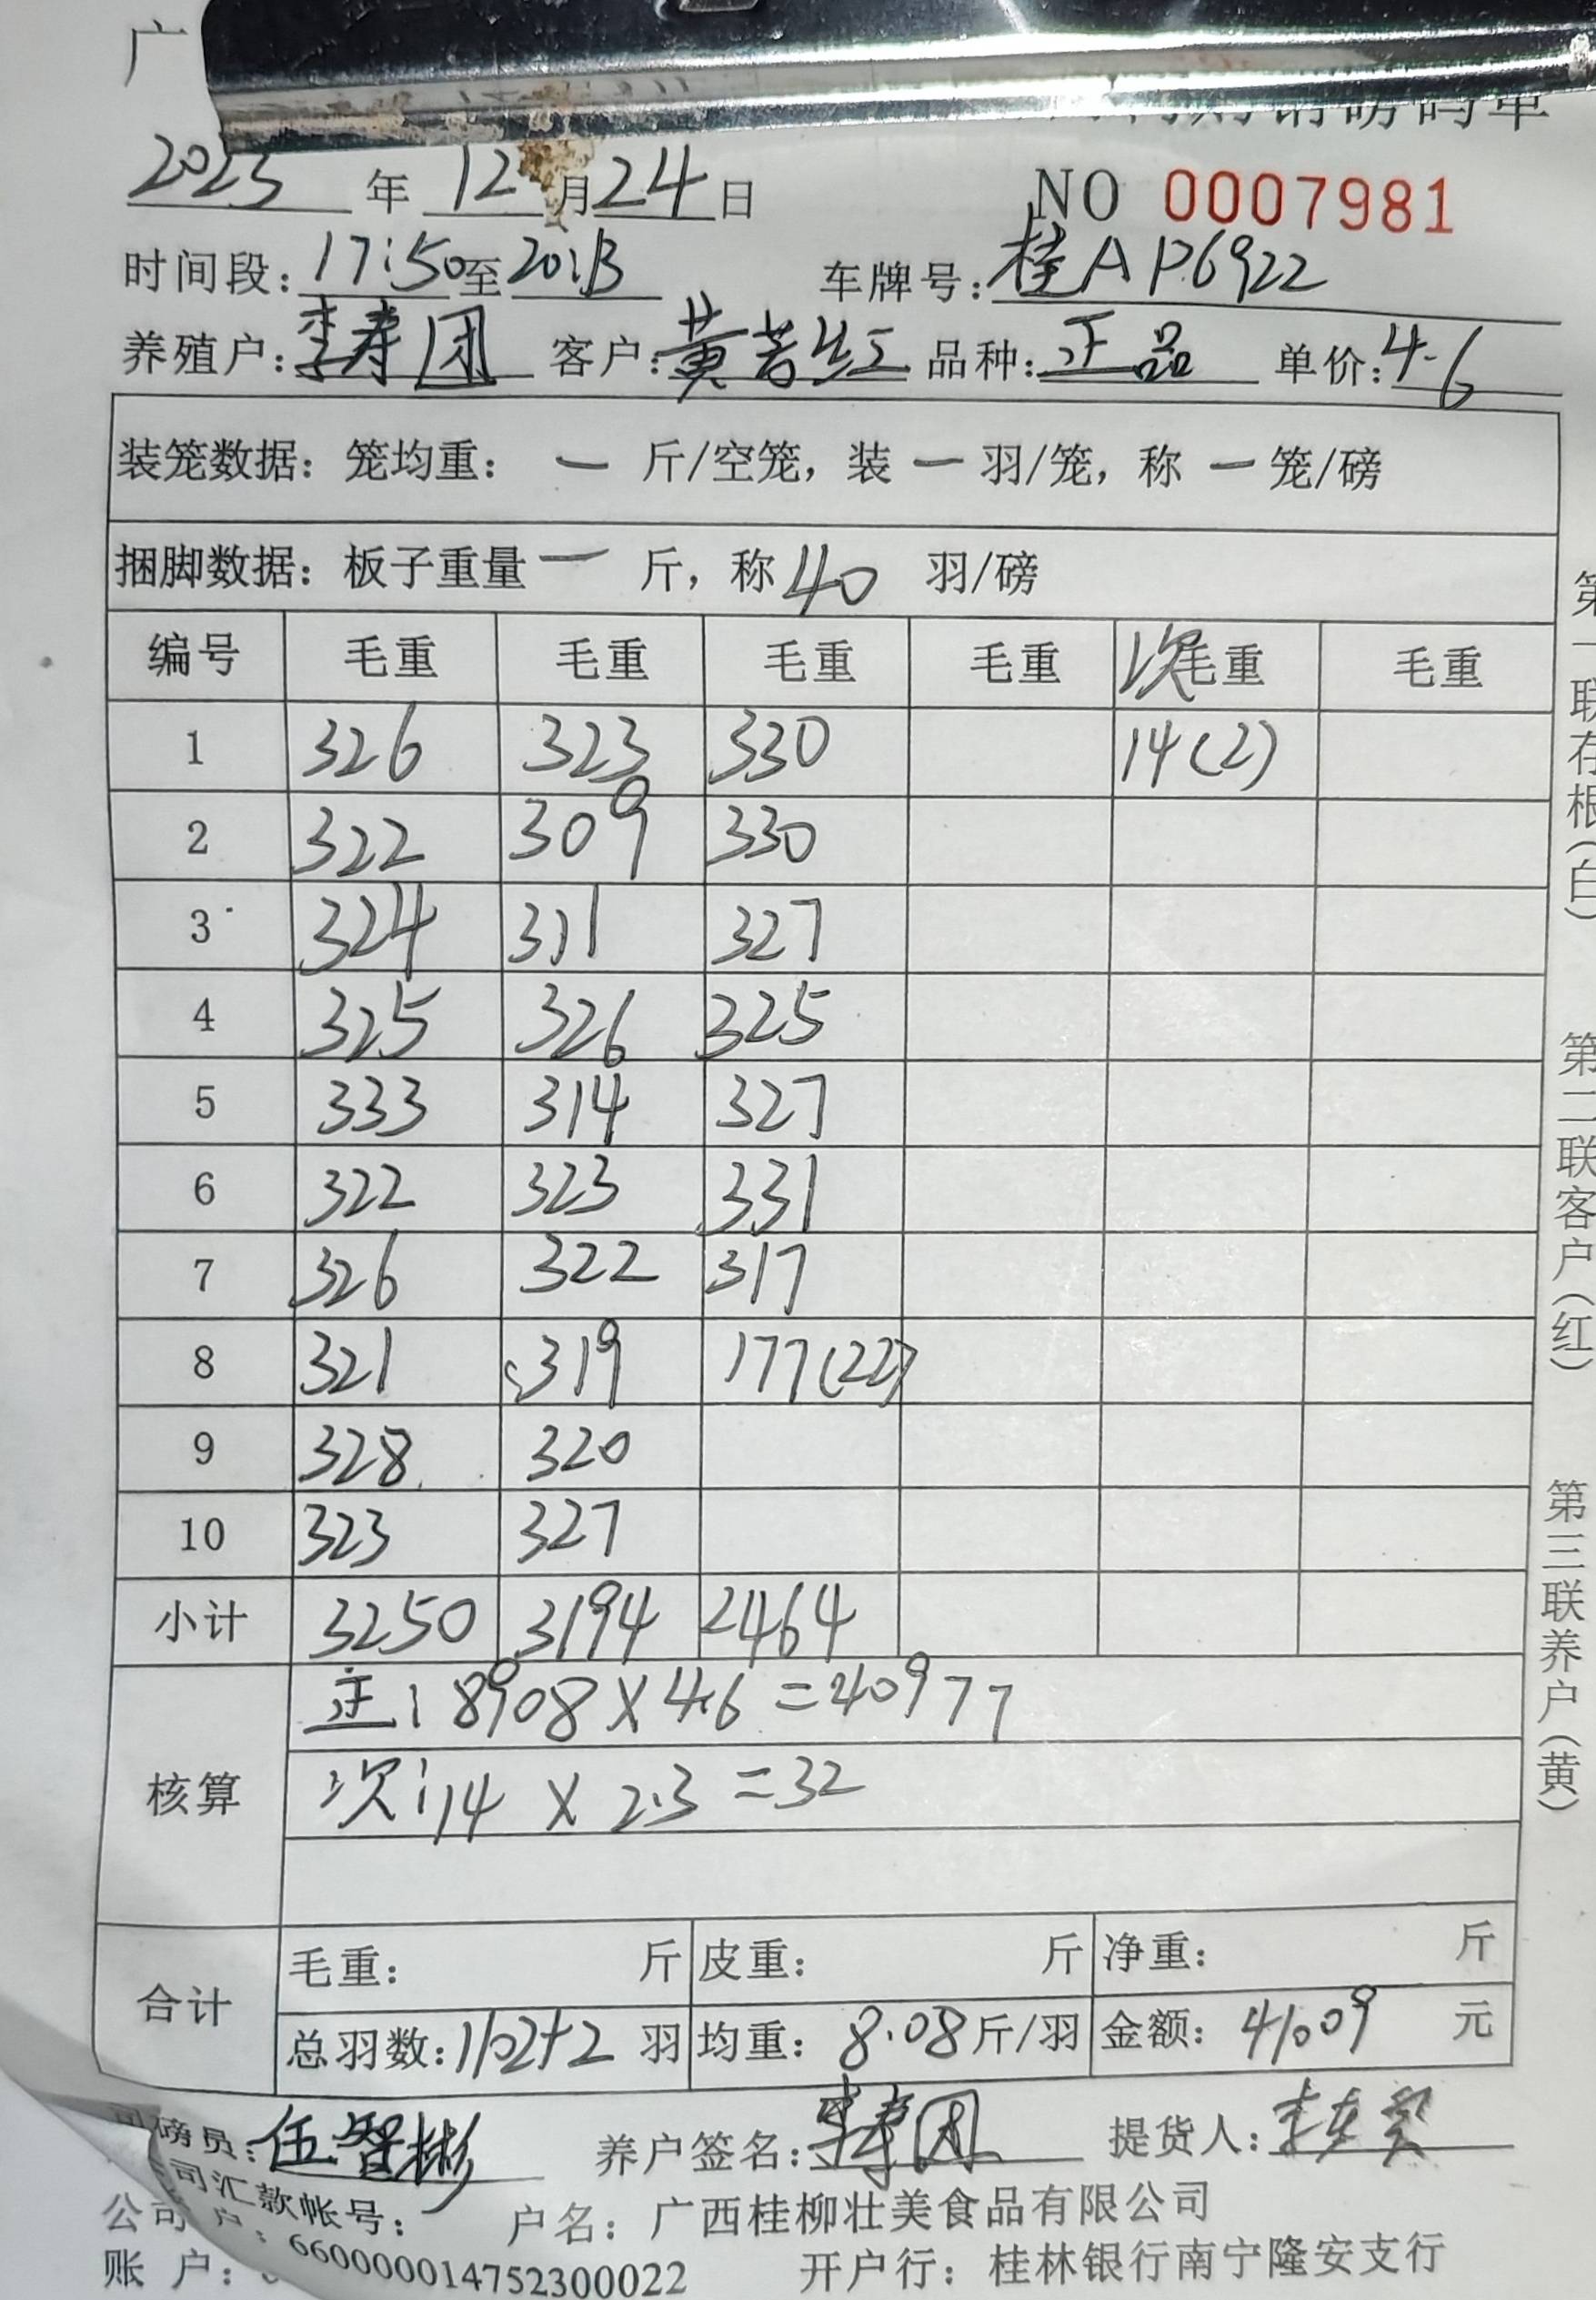 广 磅码单
2023年12月24日 NO 0007981
时间段:17:50至20:13 车牌号:桂AP6922
养殖户:李寿团 客户:黄芳红 品种:正品 单价:4.6
装笼数据: 笼均重: 一 斤/空笼, 装 一 羽/笼, 称 一 笼/磅
捆脚数据: 板子重量 一 斤, 称 40 羽/磅
编号 毛重 毛重 毛重 毛重 次毛重 毛重
1 326 323 330 14(2)
2 322 309 330
3 324 311 327
4 325 326 325
5 333 314 327
6 322 323 331
7 326 322 317
8 321 319 177(22)
9 328 320
10 323 327
小计 3250 3194 2464
核算 正: 8908×4.6=40977
次: 14×2.3=32
合计 毛重: 斤 皮重: 斤 净重: 斤
总羽数:1102+2 羽 均重: 8.08斤/羽 金额: 41009 元
司磅员:伍智彬 养户签名:李寿团 提货人:
公司 司汇款帐号: 户名: 广西桂柳壮美食品有限公司
账 户: 户: 660000014752300022 开户行: 桂林银行南宁隆安支行
第一联存根(白)
第二联客户(红)
第三联养户(黄)